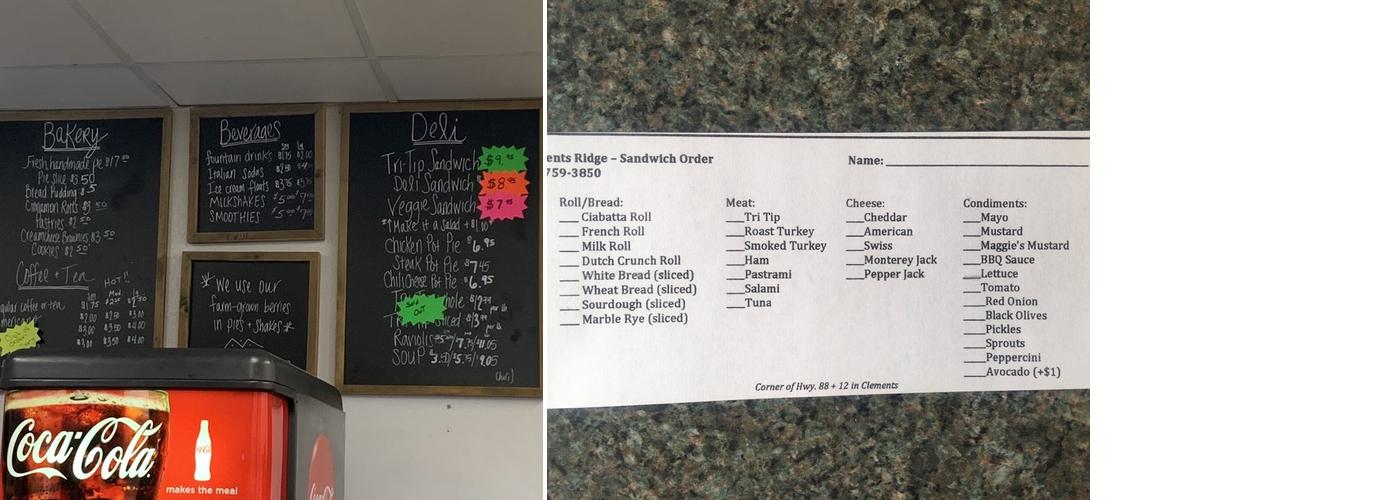 Bakery
Fresh handmade pie $17.00
Pie slice $3.50
Bread Pudding $.5
Cinnamon Rolls $3.50
Pastries $2.50
Creamcheese Brownies $3.50
Cookies $2.50
Coffee + Tea
HOT!!
coffee or tea
$1.75
$2.00 $2.50 $3.00
$3.00 $3.50 $4.00
$3.00 $3.50 $4.00
Beverages
Sm Lg
fountain drinks $1.75 $2.00
Italian Sodas $2.50
Ice cream floats $3.75
MILKSHAKES $5.00
SMOOTHIES $5.00
* We use our
farm-grown berries
in pies + shakes *
Deli
Tri-Tip Sandwich $9.95
Deli Sandwich $8.95
Veggie Sandwich $7.95
*Make it a Salad + $1.00*
Chicken Pot Pie $6.95
Steak Pot Pie $7.45
Chili Cheese Pot Pie $6.95
Sold
OUT
Raviolis
SOUP $3.50/$5.75/$9.05
Coca-Cola
makes the meal
ents Ridge – Sandwich Order
759-3850
Name:
Roll/Bread:
Ciabatta Roll
French Roll
Milk Roll
Dutch Crunch Roll
White Bread (sliced)
Wheat Bread (sliced)
Sourdough (sliced)
Marble Rye (sliced)
Meat:
Tri Tip
Roast Turkey
Smoked Turkey
Ham
Pastrami
Salami
Tuna
Cheese:
Cheddar
American
Swiss
Monterey Jack
Pepper Jack
Condiments:
Mayo
Mustard
Maggie's Mustard
BBQ Sauce
Lettuce
Tomato
Red Onion
Black Olives
Pickles
Sprouts
Peppercini
Avocado (+$1)
Corner of Hwy. 88 + 12 in Clements